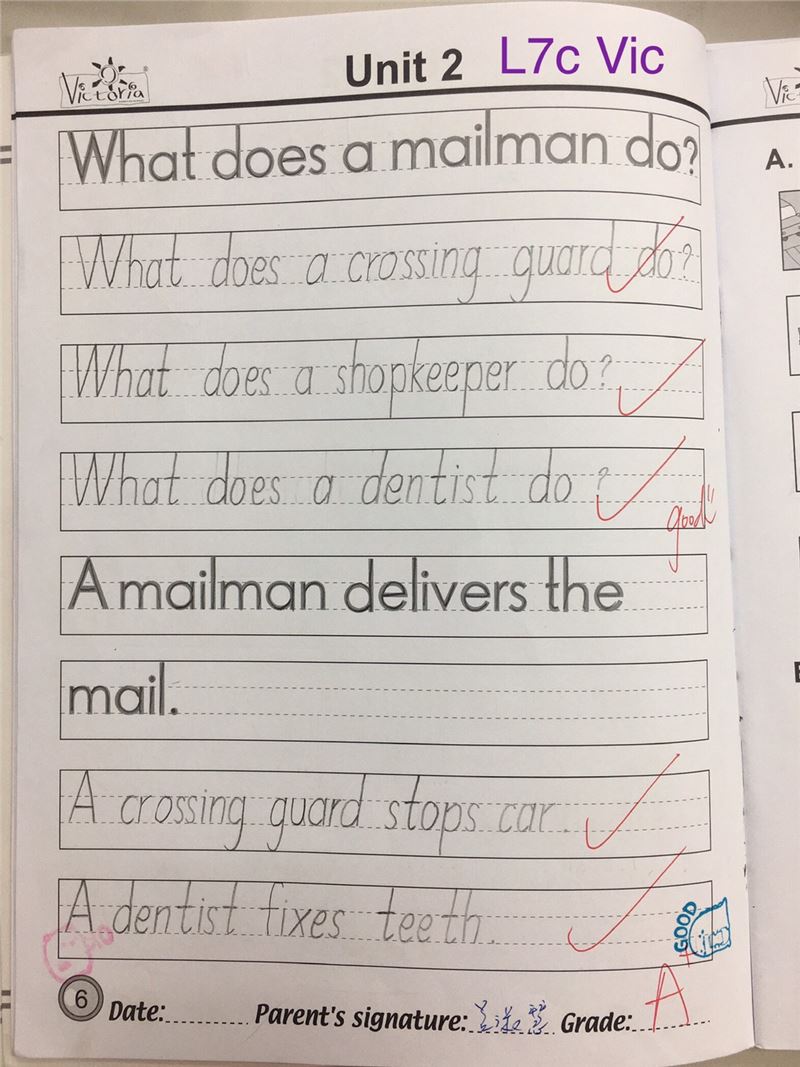 Victoria
Unit 2 L7c Vic
What does a mailman do?
What does a crossing guard do?
What does a shopkeeper do?
What does a dentist do?
good!!
A mailman delivers the
mail.
A crossing guard stops car.
A dentist fixes teeth.
GOOD
6 Date: Parent's signature: Grade: A+
A.